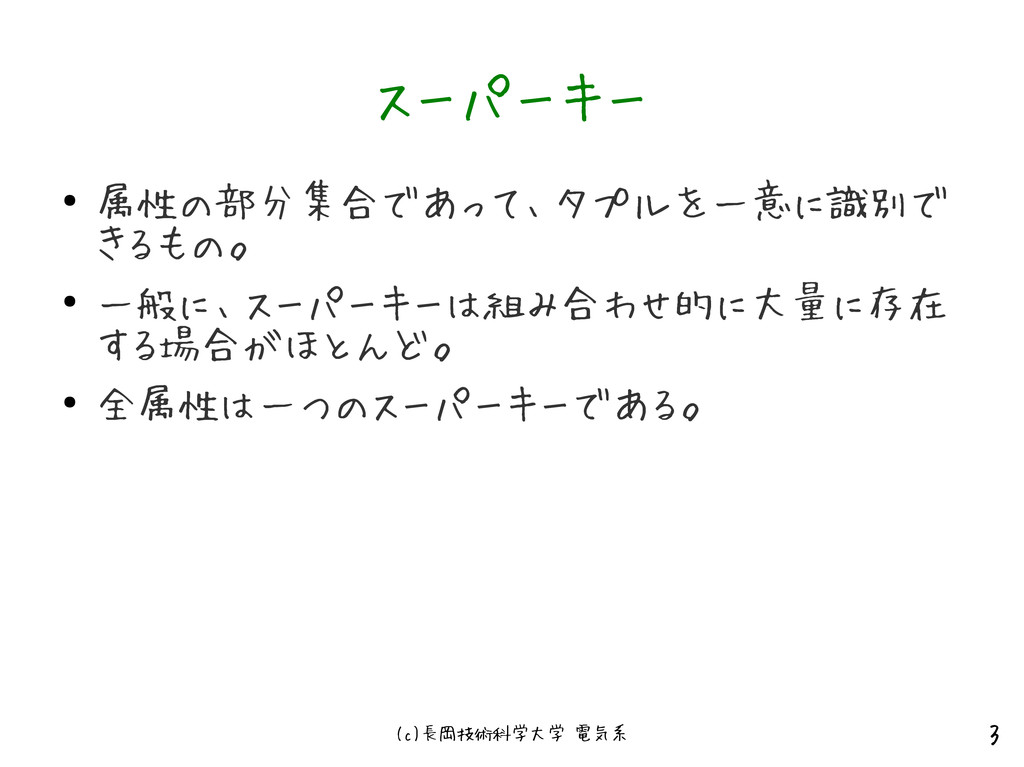 スーパーキー
• 属性の部分集合であって、タプルを一意に識別で
きるもの。
• 一般に、スーパーキーは組み合わせ的に大量に存在
する場合がほとんど。
• 全属性は一つのスーパーキーである。
(c)長岡技術科学大学 電気系
3